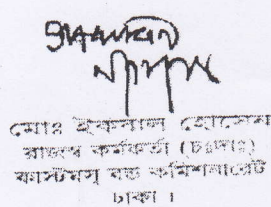 মোঃ ইকবাল হোসেন
রাজস্ব কর্মকর্তা (চঃদাঃ)
কাস্টমস্ বন্ড কমিশনারেট
ঢাকা ।